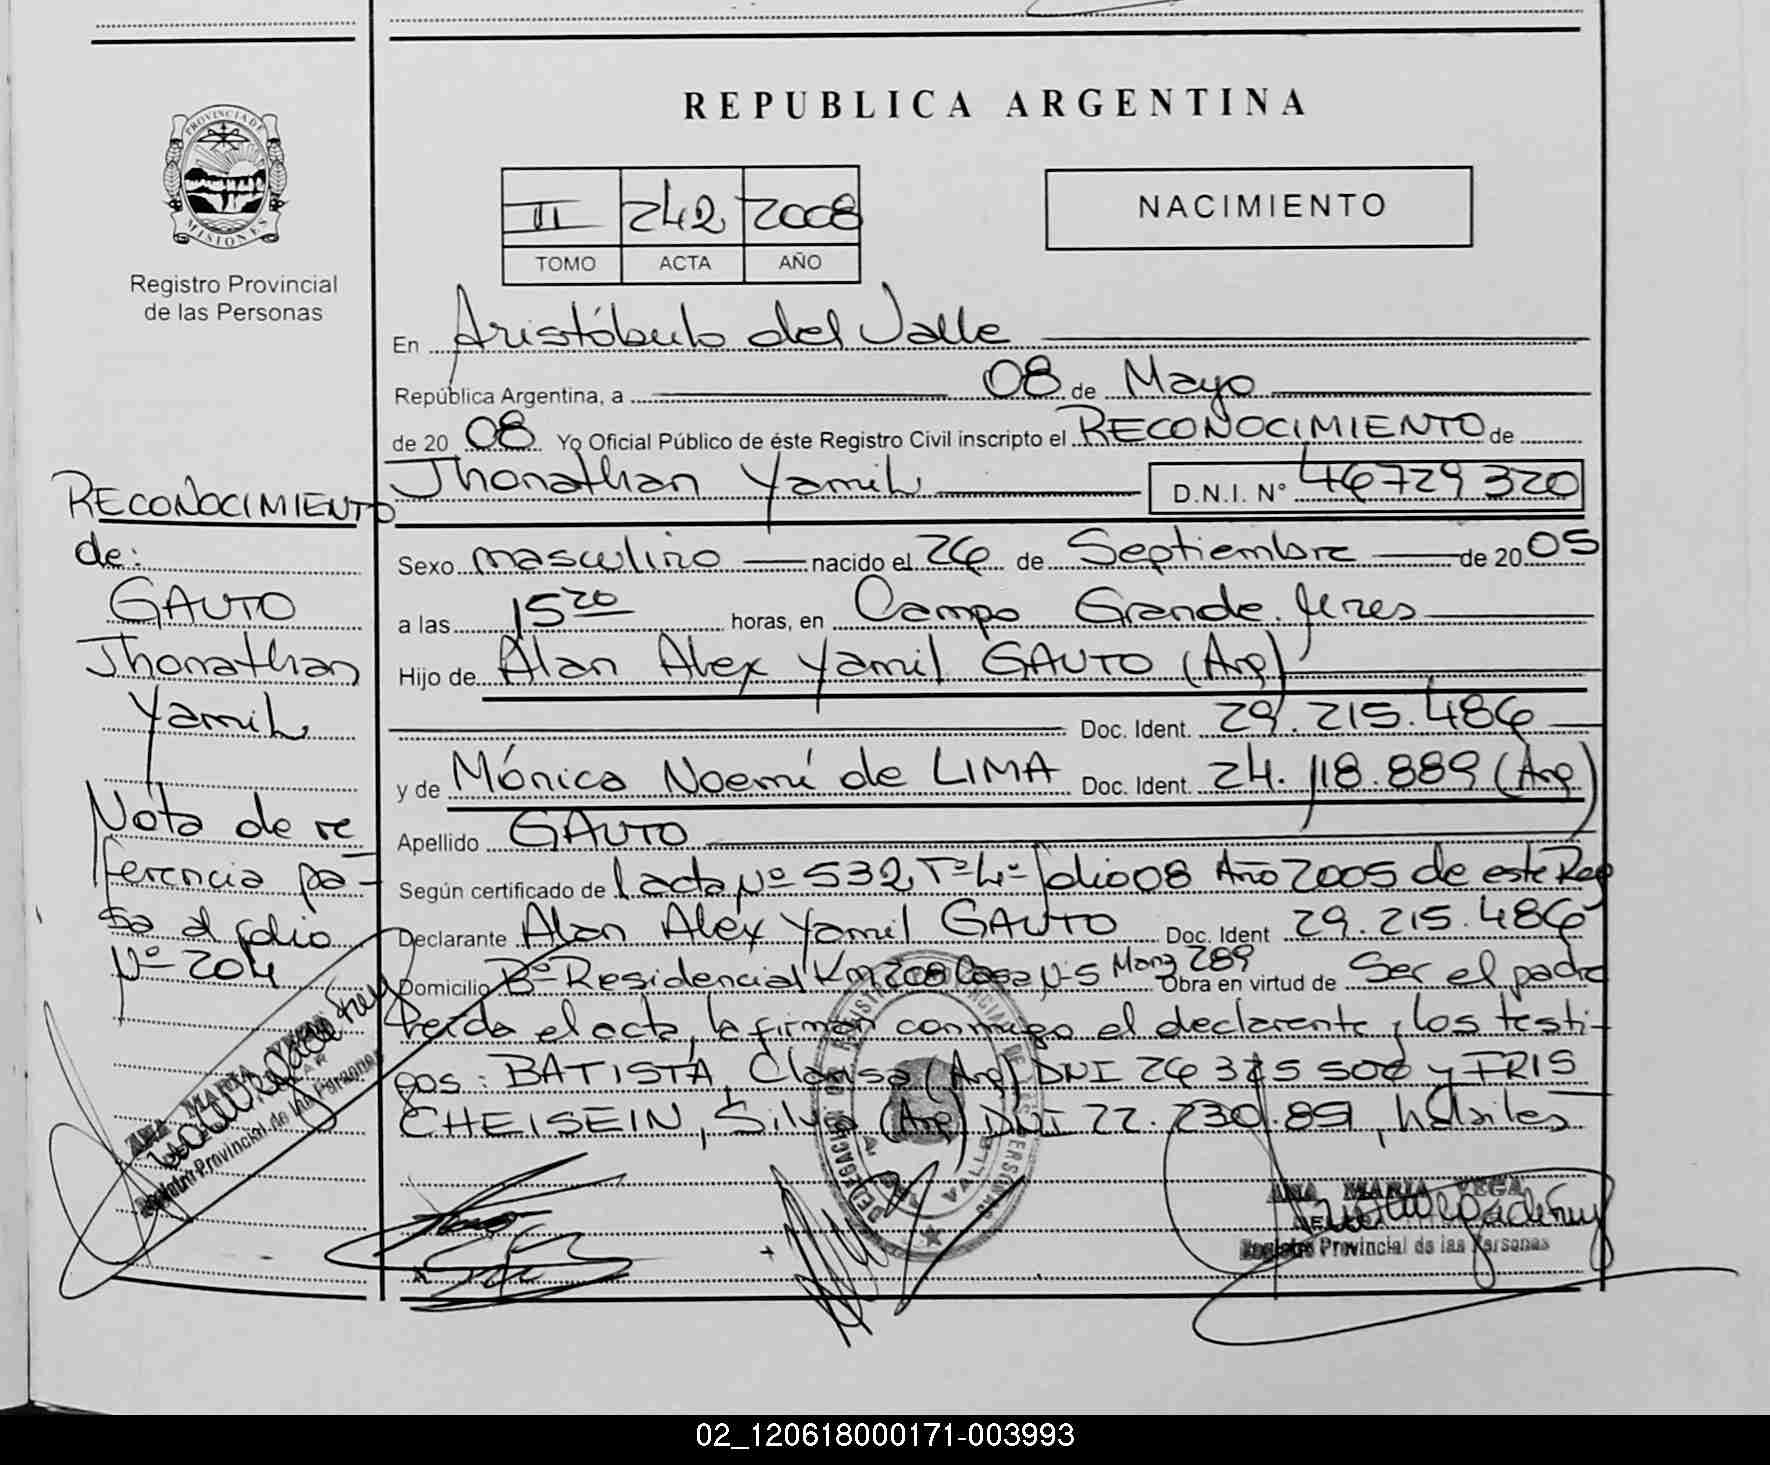 REPUBLICA ARGENTINA
PROVINCIA DE MISIONES
Registro Provincial
de las Personas
II 242 2008
TOMO ACTA AÑO
NACIMIENTO
En Aristóbulo del Valle
República Argentina, a 08 de Mayo
de 20 08 Yo Oficial Público de éste Registro Civil inscripto el RECONOCIMIENTO de
Jhonathan Yamil D.N.I. N° 46729320
Sexo masculino nacido el 26 de Septiembre de 20 05
a las 15 20 horas, en Campo Grande. Mnes
Hijo de Alan Alex Yamil GAUTO (Arg)
Doc. Ident. 29.215.486
y de Mónica Noemí de LIMA Doc. Ident. 24.118.889 (Arg)
Apellido GAUTO
Según certificado de / acta Nº 532 Tº 4º folio 08 Año 2005 de este Reg
Declarante Alan Alex Yamil GAUTO Doc. Ident 29.215.486
Domicilio Bº Residencial Km 208 Casa Nº 5 Manz 289 Obra en virtud de Ser el padre
leída el acta, la firman conmigo el declarante y los testi-
gos: BATISTA, Clarisa (Arg) DNI y FRIS
CHEISEIN, Silvia (Arg) DNI 22.230.851, hábiles
RECONOCIMIENTO
de:
GAUTO
Jhonathan
Yamil
Nota de re
ferencia pa-
sa al folio
Nº 204
ANA MARIA VEGA
Registro Provincial de las Personas
ANA MARIA VEGA
Registro Provincial de las Personas
DELEGACION VALLE
02_120618000171-003993